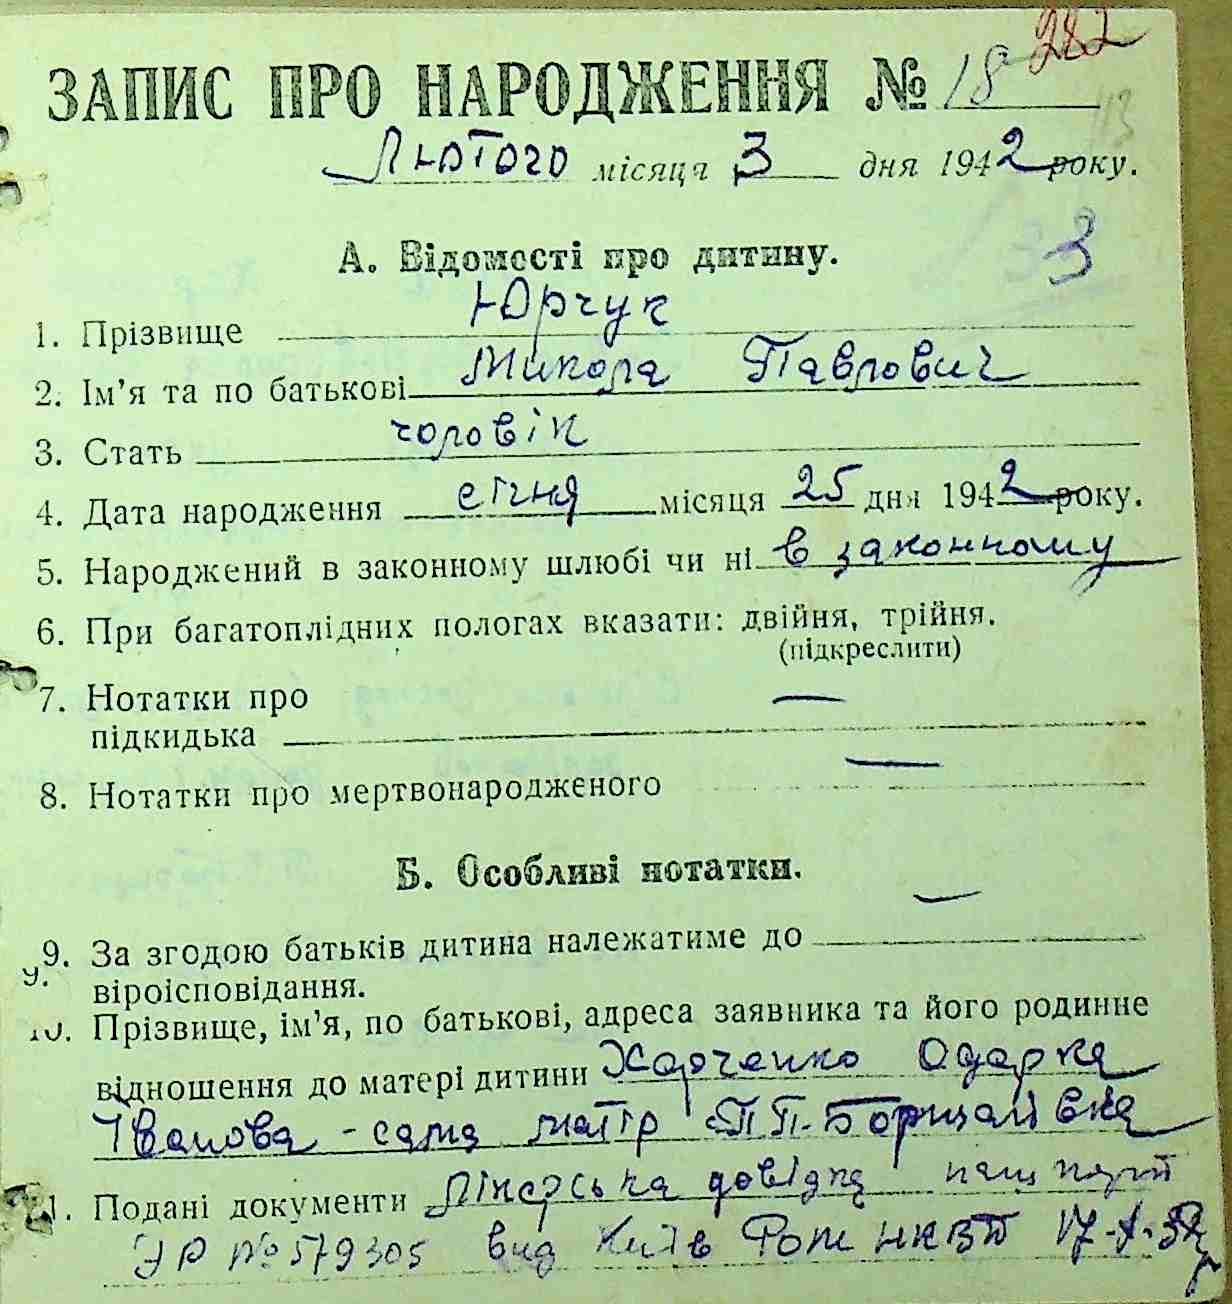 282
ЗАПИС ПРО НАРОДЖЕННЯ № 18
113
Лютого місяця 3 дня 1942 року.
А. Відомості про дитину.
3
1. Прізвище Юрчук
2. Ім'я та по батькові Микола Павлович
3. Стать чоловік
4. Дата народження січня місяця 25 дня 1942 року.
5. Народжений в законному шлюбі чи ні в законному
6. При багатоплідних пологах вказати: двійня, трійня.
(підкреслити)
7. Нотатки про
підкидька —
8. Нотатки про мертвонародженого —
Б. Особливі нотатки.
9. За згодою батьків дитина належатиме до —
віроісповідання.
10. Прізвище, ім'я, по батькові, адреса заявника та його родинне
відношення до матері дитини Харченко Одарка
Іванова - сама матір П П.-Борщагівка
11. Подані документи Лікарська довідка пашпорт
№ 579305 вид Київ НКВД